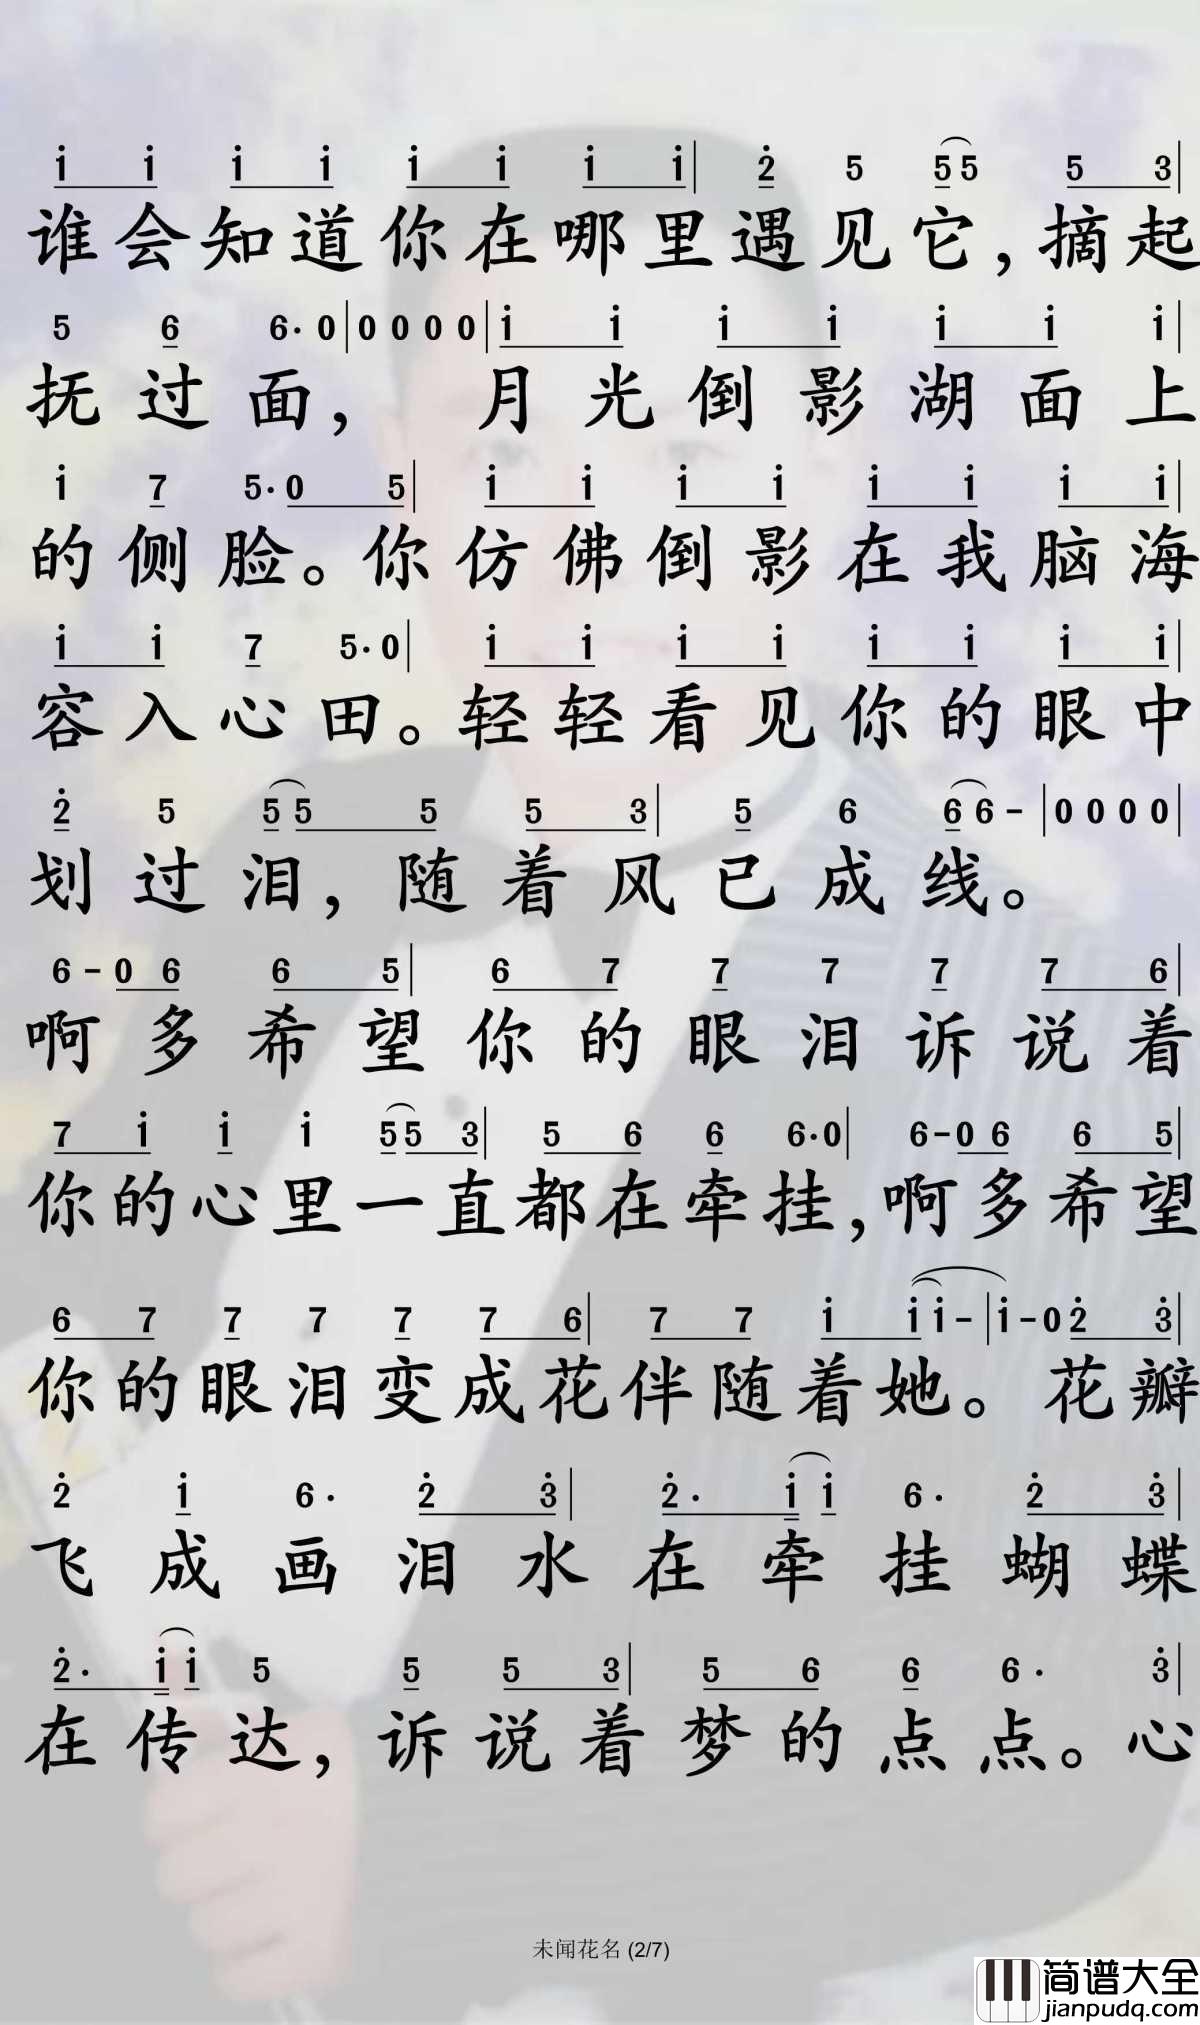 i i i i i i i i | 2 5 5 5 5 3 |
谁会知道你在哪里遇见它，摘起
5 6 6· 0 | 0 0 0 0 | i i i i i i i |
抚过面，月光倒影湖面上
i 7 5· 0 5 | i i i i i i i i |
的侧脸。你仿佛倒影在我脑海
i i 7 5· 0 | i i i i i i i i |
容入心田。轻轻看见你的眼中
2 5 5 5 5 5 3 | 5 6 6 6 - | 0 0 0 0 |
划过泪，随着风已成线。
6 - 0 6 6 5 | 6 7 7 7 7 7 6 |
啊多希望你的眼泪诉说着
7 i i i 5 5 3 | 5 6 6 6· 0 | 6 - 0 6 6 5 |
你的心里一直都在牵挂，啊多希望
6 7 7 7 7 7 6 | 7 7 i i i - | i - 0 2 3 |
你的眼泪变成花伴随着她。花瓣
2 i 6· 2 3 | 2· i i 6· 2 3 |
飞成画泪水在牵挂蝴蝶
2· i i 5 5 5 3 | 5 6 6 6· 3 |
在传达，诉说着梦的点点。心
未闻花名 (2/7)
简谱大全
jianpudq.com